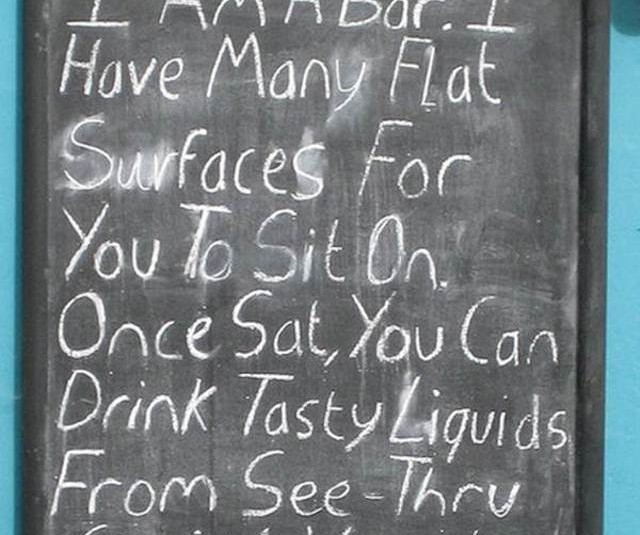 I AM A Bar. I
Have Many Flat
Surfaces For
You To Sit On.
Once Sat, You Can
Drink Tasty Liquids
From See-Thru